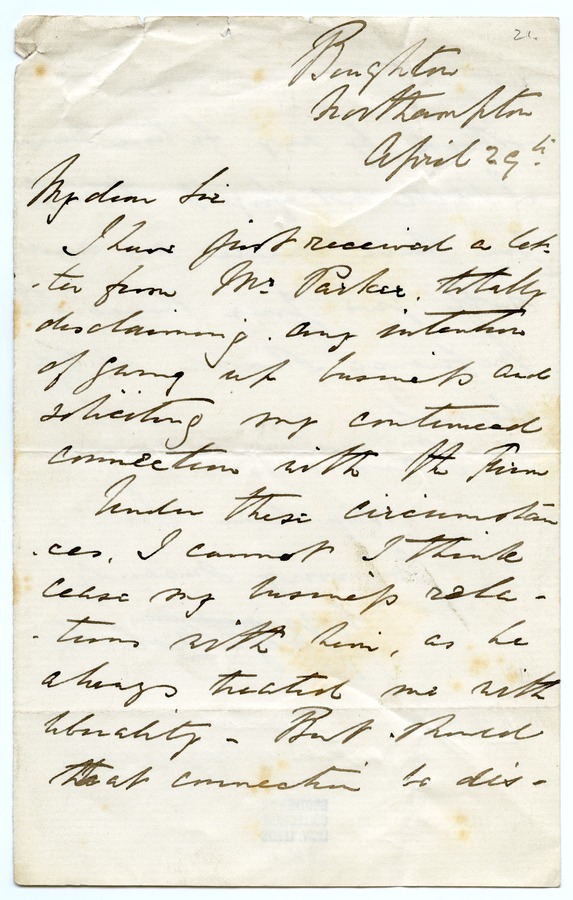 21.
Boughton
Northampton
April 29th.
My dear Sir
I have just received a let-
-ter from Mr Parker, totally
disclaiming any intention
of giving up business and
soliciting my continued
connection with the Firm
Under these circumstan
-ces, I cannot I think
cease my business rela-
-tions with him, as he
always treated me with
liberality - But should
that connection be dis-